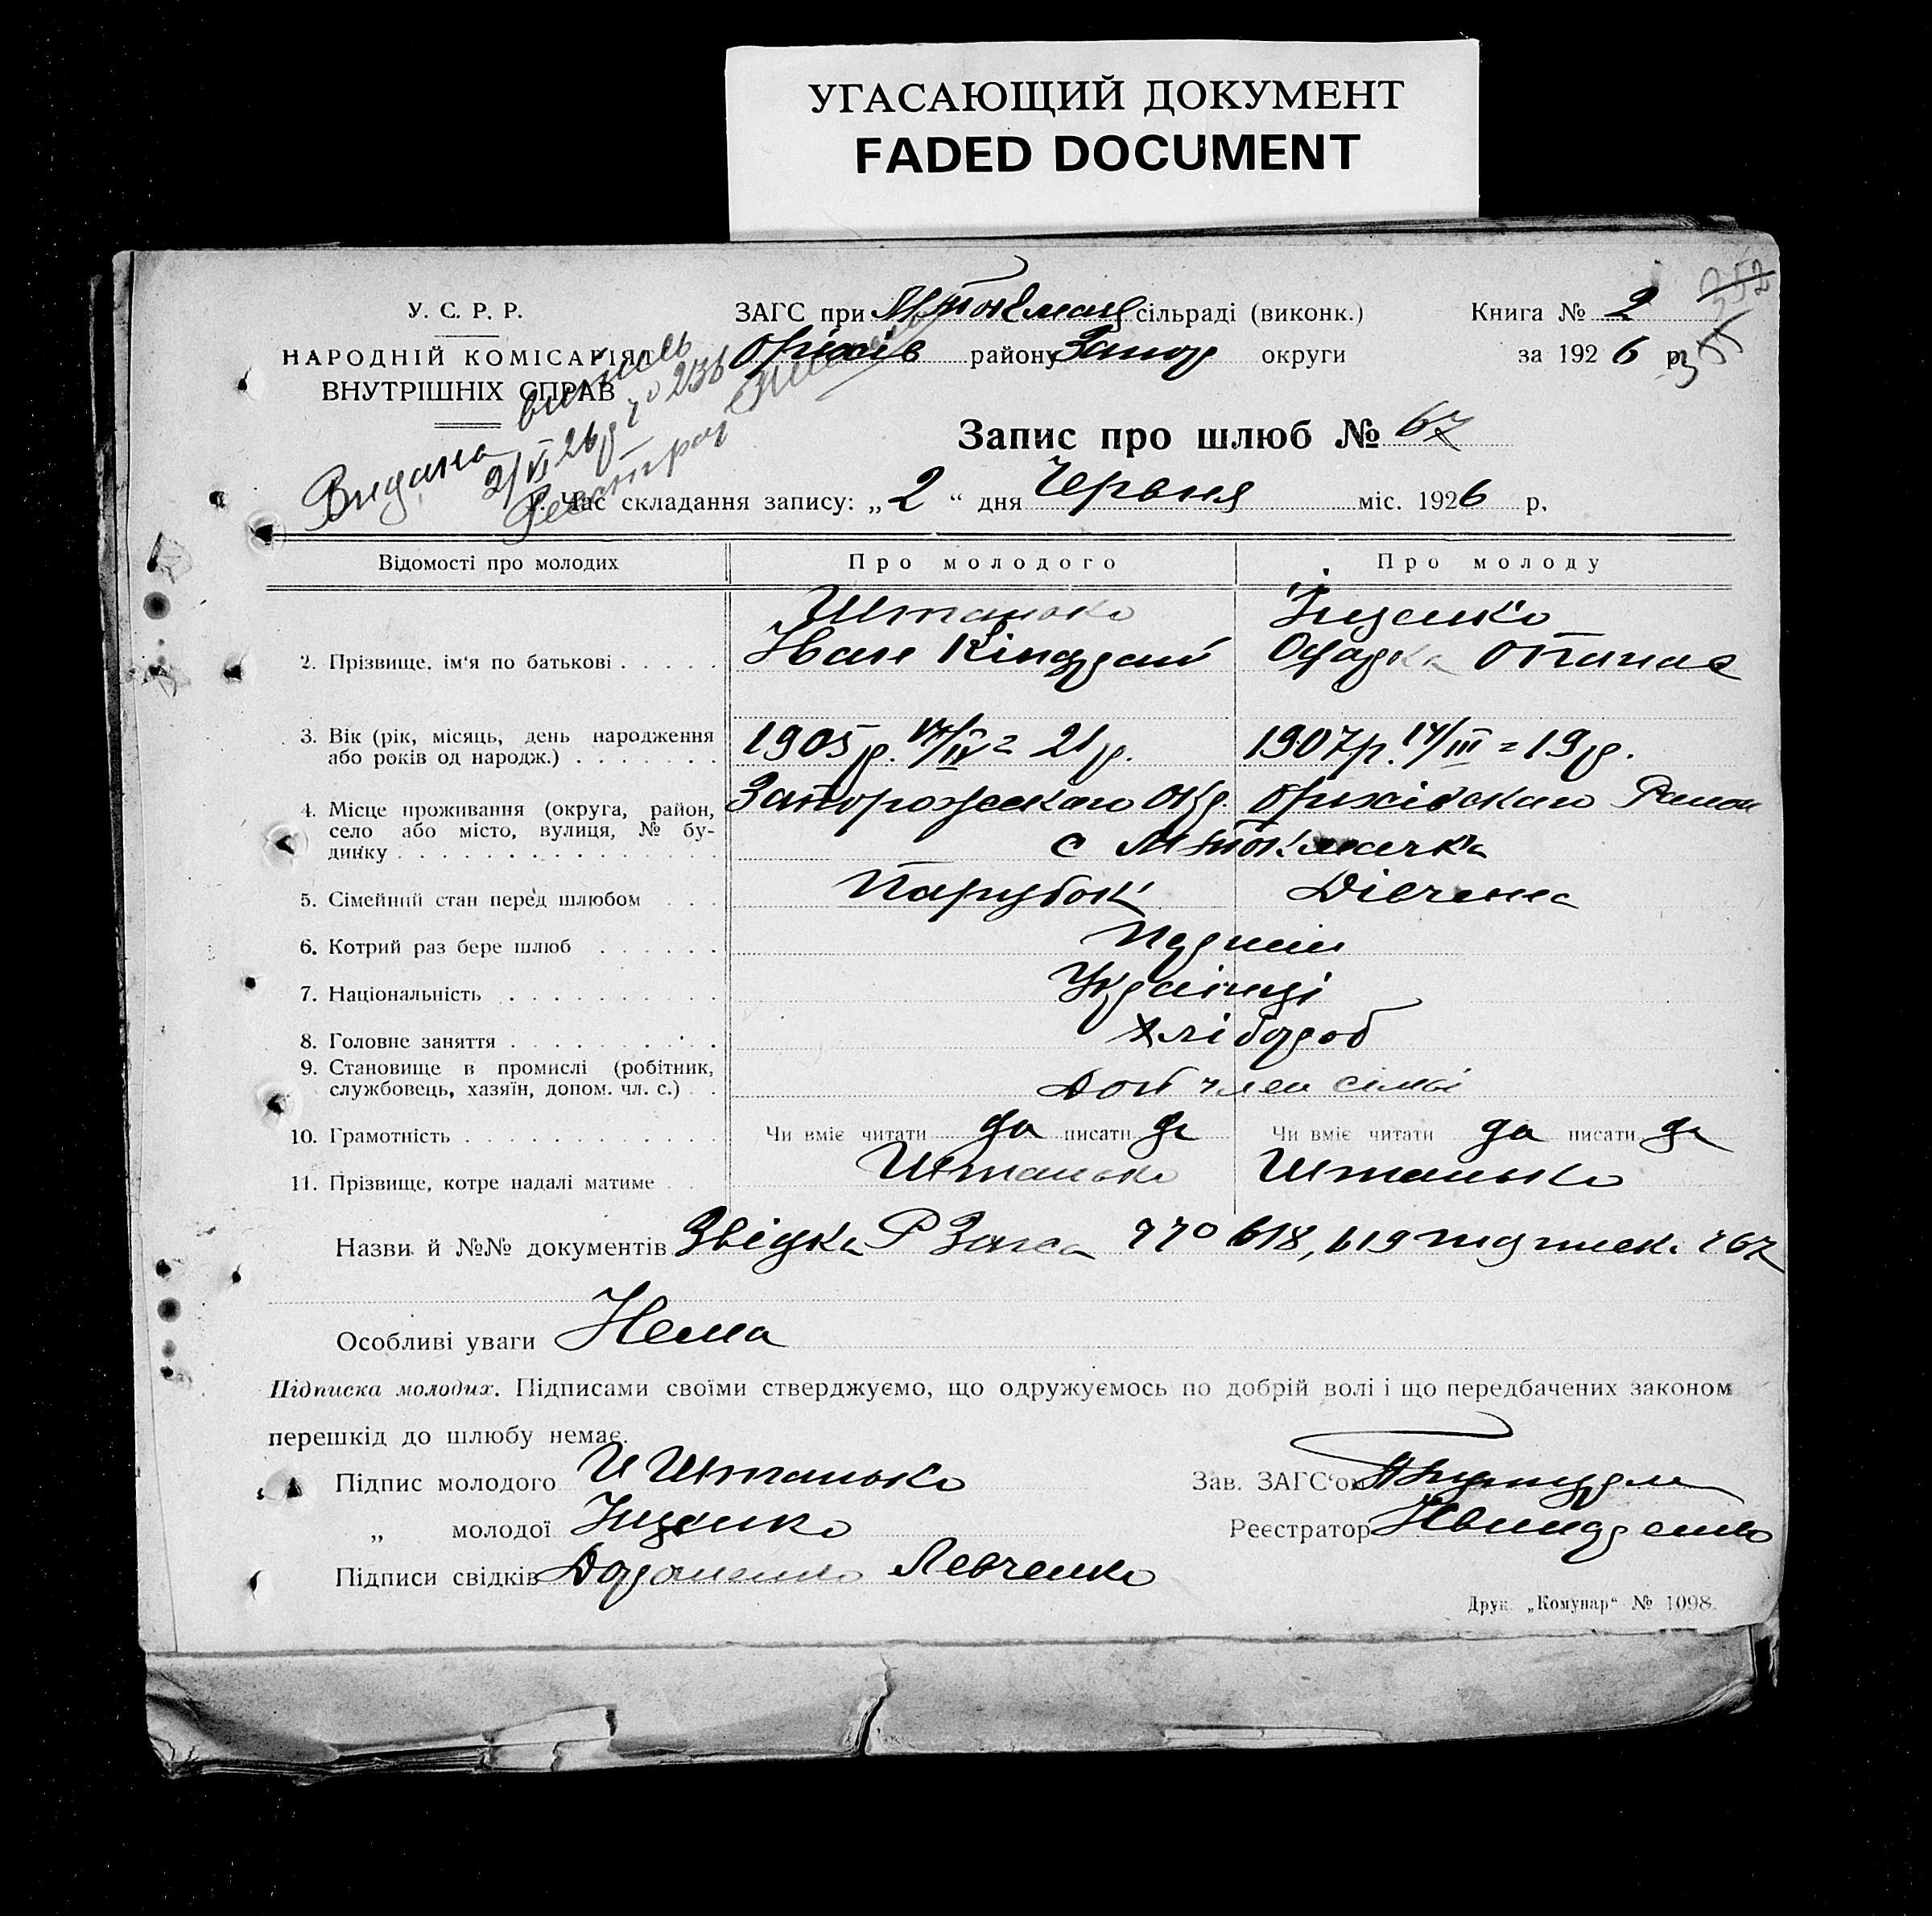 УГАСАЮЩИЙ ДОКУМЕНТ
FADED DOCUMENT
352
355
У. С. Р. Р.
НАРОДНІЙ КОМІСАРІЯТ
ВНУТРІШНІХ СПРАВ
ЗАГС при М Токмац сільраді (виконк.)
Оріхів району Запор округи
Книга № 2
за 1926 р.
Видана виписъ
2/VI 26р № 236
Реєстратор
Запис про шлюб № 67
1. Час складання запису: „ 2 “ дня Червня міс. 1926 р.
Відомості про молодих
Про молодого
Про молоду
2. Прізвище, ім‘я по батькові
Штанько
Іван Кіндрат
Іщенко
Опанас
3. Вік (рік, місяць, день народження
або років од народж.)
1905р. 17/IV = 21 р.
1907р. 14/III = 19 р.
4. Місце проживання (округа, район,
село або місто, вулиця, № бу-
динку
Запорожского Окр. Оріхівского Район
с М Токмачка
5. Сімейний стан перед шлюбом
Парубок
Дівчина
6. Котрий раз бере шлюб
Перший
7. Національність
Українці
8. Головне заняття
Хлібороб
9. Становище в промислі (робітник,
службовець, хазяїн, допом. чл. с.)
Доп член сімьі
10. Грамотність
Чи вміє читати да писати да
Чи вміє читати да писати да
11. Прізвище, котре надалі матиме
Штанько
Штанько
Назви й №№ документів Звідка Р Загса 618, 619 підписк. 767
Особливі уваги Нема
Підписка молодих. Підписами своїми стверджуємо, що одружуємось по добрій волі і що передбачених законом
перешкід до шлюбу немає.
Підпис молодого И Штанько
Зав. ЗАГС‘ом
„ молодої Іщенко
Реєстратор
Підписи свідків Левченко
Друк. „Комунар“ № 1098.